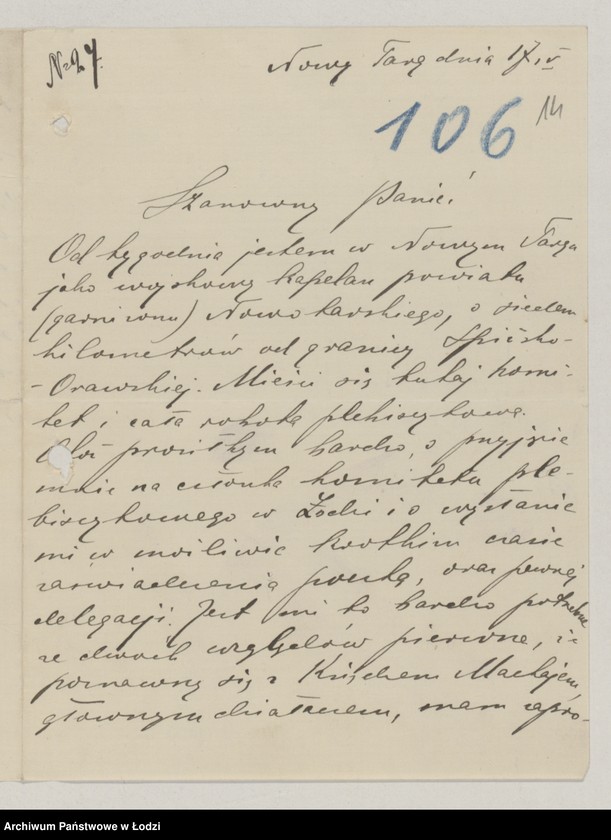 No 27.
Nowy Targ dnia 17.V
106
14
Szanowny Panie!
Od tygodnia jestem w Nowym Targu
jako wojskowy kapelan powiatu
(garnizonu) Nowotarskiego, o siedem
kilometrów od granicy Spisko-
-Orawskiej. Mieści się tutaj komi-
tet i cała robota plebiscytowa.
Otóż prosiłbym bardzo, o przyjęcie
mnie na członka komitetu ple-
biscytowego w Łodzi i o wysłanie
mi w możliwie krótkim czasie
zaświadczenia pocztą, oraz pewnej
delegacji. Jest mi to bardzo potrzebne
ze dwóch względów pierwsze, że
poznawszy się z Księdzem Machajem,
głównym działaczem, mam zapro-
Archiwum Państwowe w Łodzi